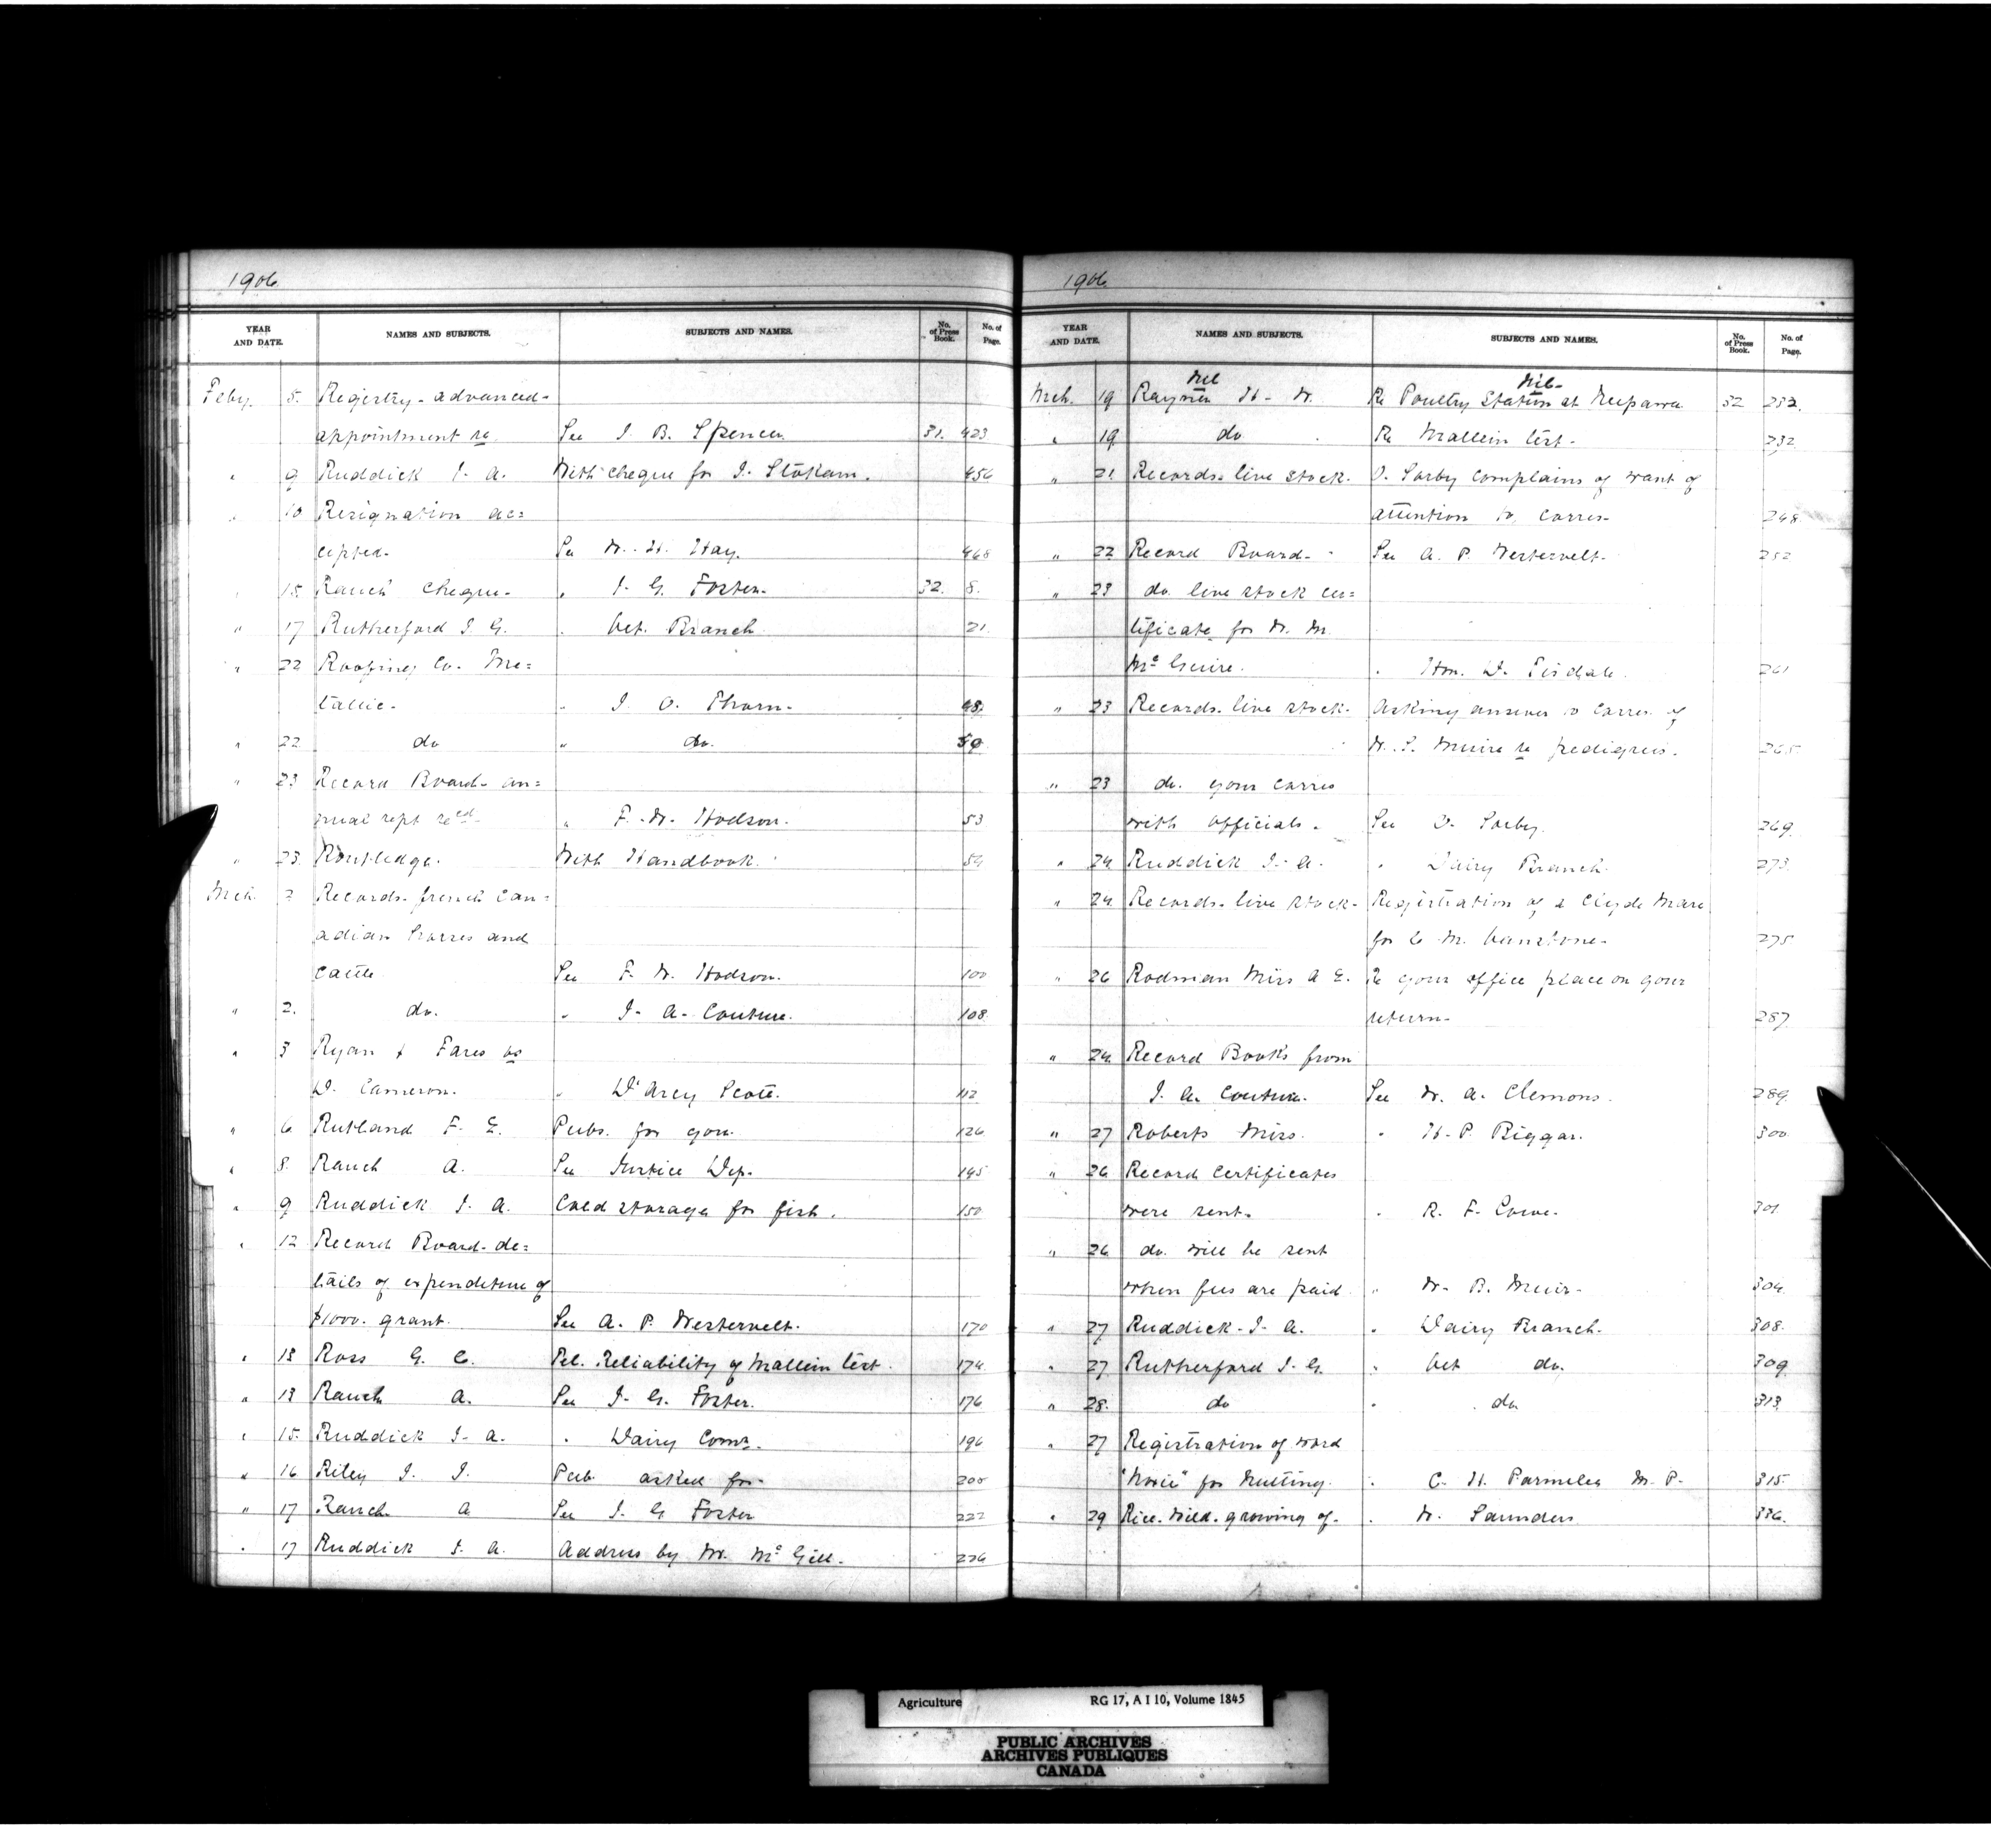 1906
YEAR AND DATE. NAMES AND SUBJECTS. SUBJECTS AND NAMES. No. of Press Book. No. of Page.
Feby. 5. Registry - advanced-
appointment re See J. B. Spencer. 31. 423
" 9 Ruddick J. A. With cheque for J. Stokam. 456
" 10 Resignation ac=
cepted- See W. H. Hay. 468
" 15. Ranch Cheque- " J. G. Foster. 32. 8.
" 17 Rutherford J. G. " Vet. Branch. 21.
" 22 Roofing Co. Me=
tallic- " J. O. Thorn- 48.
" 22 do " do. 50
" 23 Record Board- an=
nual rept recd- " F. W. Hodson. 53
" 23. Routledge. With Handbook. 54
Mch. 2 Records- french Can=
adian horses and
cattle See F. W. Hodson. 100
" 2. do. " J. A. Couture. 108
" 3 Ryan & Fares vs
D. Cameron. " D'Arcy Scott. 112
" 6 Rutland F. E. Pubs. for you. 126
" 8. Rauch A. See Justice Dep. 145
" 9 Ruddick J. A. Cold storage for fish. 150
" 12 Record Board- de=
tails of expenditure of
$1000. grant. See A. P. Westervelt. 170
" 13 Ross G. C. Pel. Reliability of Mallein test. 174
" 13 Rauch A. See J. G. Foster. 176
" 15. Ruddick J. A. " Dairy Comr. 196
" 16 Riley J. J. Pub. asked for- 200
" 17 Rauch A See J. G Foster 222
" 17 Ruddick J. A. Address by Mr. McGill. 226
1906
YEAR AND DATE. NAMES AND SUBJECTS. SUBJECTS AND NAMES. No. of Press Book. No. of Page.
Mch. 19 Rayner H. W. Re Poultry Station at Neepawa 32 232.
" 19 do. Re Mallein test- 232
" 21. Records- live stock. D. Sorby complains of want of
attention to corres- 248
" 22 Record Board- See A. P. Westervelt- 252
" 23 do. live stock cer=
tificate for W. M.
McGuire. " Hon. D. Tisdale. 261
" 23 Records- live stock- Asking answer to corres. of
W. S. Muire re pedigrees. 265
" 23 do. your corres
with officials. See D. Sorby. 269
" 24 Ruddick J. A. " Dairy Branch. 273.
" 24 Records- live stock- Registration of a Clyde Mare
for C. M. Vanstone. 275
" 26 Rodman Miss A E. Re your office place on your
return- 287
" 24 Record Books from
J. A. Couture. See W. A. Clemons. 289
" 27 Roberts Miss. " H. P. Biggar. 300
" 26 Record Certificates
were sent. " R. F. Cowe. 301
" 26 do. will be sent
when fees are paid. " W. B. Muir- 304
" 27 Ruddick- J. A. " Dairy Branch. 308.
" 27 Rutherford J. G. " Vet do. 309
" 28. do " do. 313
" 27 Registration of word
for Nutting. " C. H. Parmelee M. P. 315.
" 29 Rice- Wild- growing of- " W. Saunders 336.
Agriculture RG 17, A I 10, Volume 1845
PUBLIC ARCHIVES
ARCHIVES PUBLIQUES
CANADA